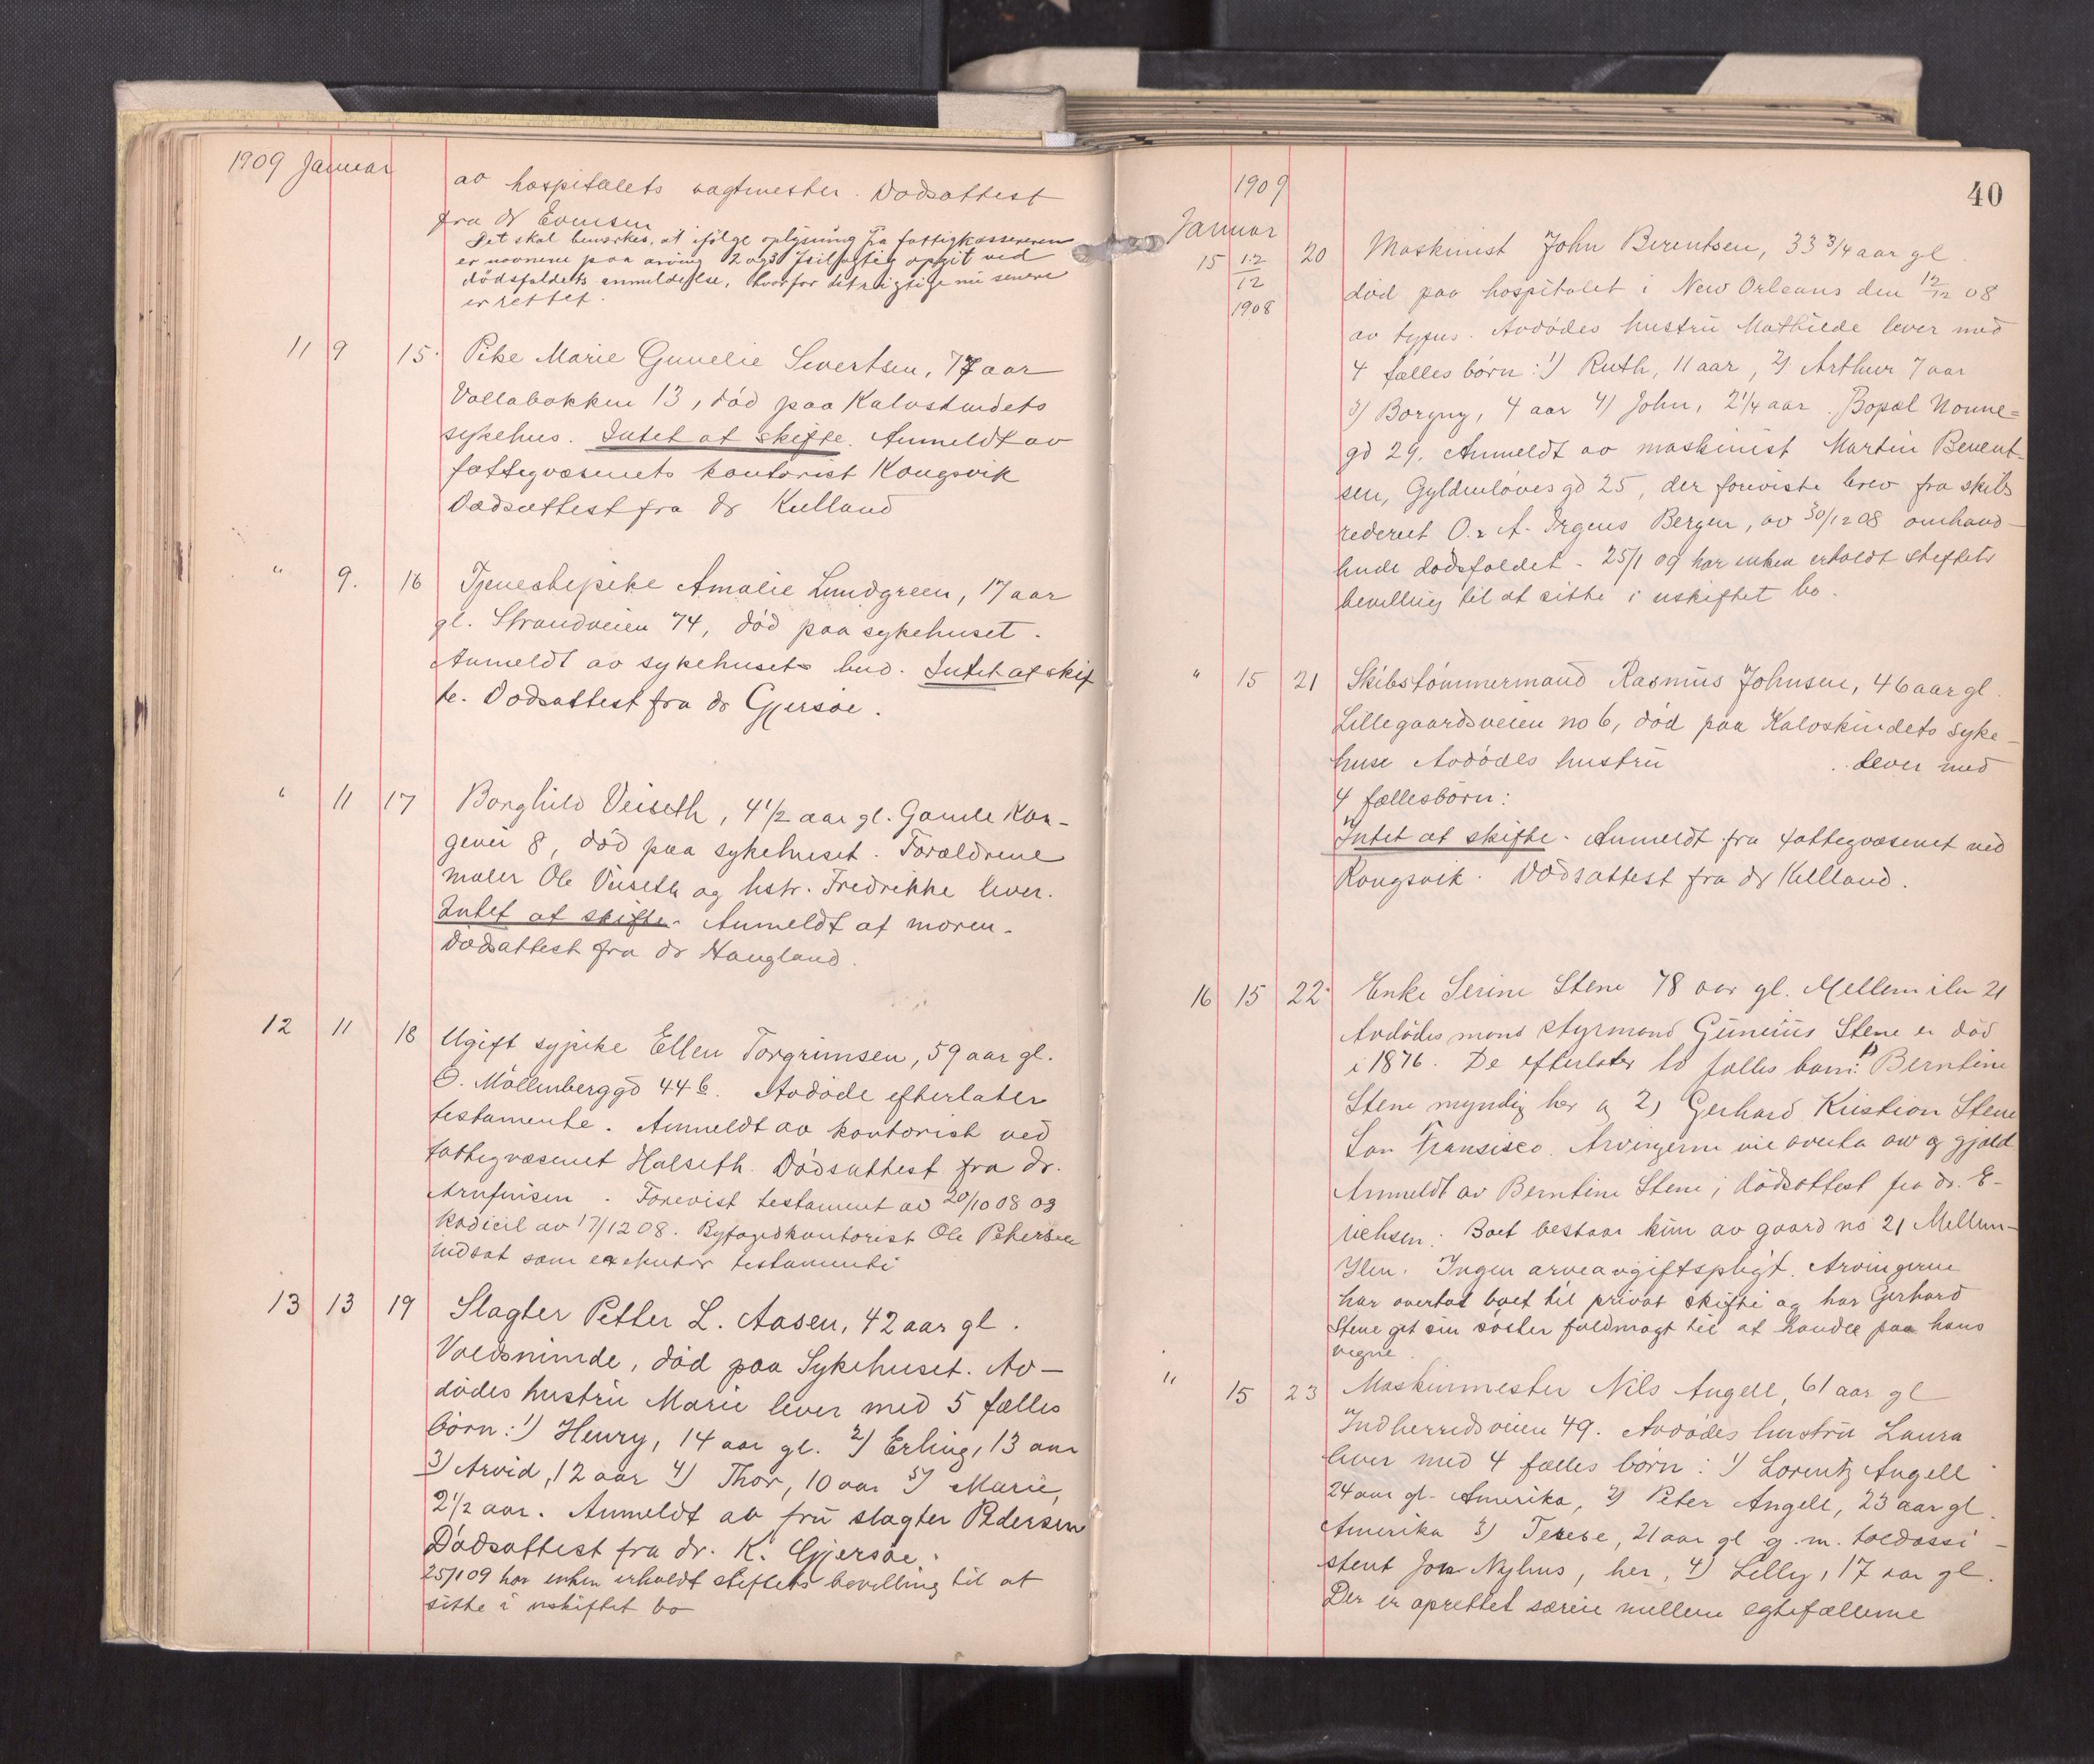 1909 Januar
av hospitalets vagtmester. Dødsattest
fra dr Evensen
Det skal bemerkes, at ifølge oplysning fra fattigkassereren
er navnene paa arving 2 og 3 feilagtig opgit ved
dödsfaldets anmeldelse, hvorfor det rigtige nu senere
er rettet.
11 9 15. Pike Marie Gunelie Sivertsen, 77 aar
Vollabakken 13, död paa Kalvskindets
sykehus. Intet at skifte. Anmeldt av
fattigvæsenets kontorist Kongsvik
Dødsattest fra dr Kielland
" 9. 16 Tjenestepike Amalie Lundgreen, 17 aar
gl. Strandveien 74, död paa sykehuset.
Anmeldt av sykehusets bud. Intet at skif
te. Dødsattest fra dr Gjersøe.
" 11 17 Borghild Veiseth, 4 1/2 aar gl. Gamle Kon-
gevei 8, död paa sykehuset. Forældrene
maler Ole Veiseth og hstr. Fredrikke lever.
Intet at skifte. Anmeldt af moren.
Dødsattest fra dr Haugland.
12 11 18 Ugift sypike Ellen Torgrimsen, 59 aar gl.
Ö. Möllenberggd 44 b. Avdøde efterlater
testamente. Anmeldt av kontorist ved
fattigvæsenet Halseth. Dödsattest fra dr.
Arnfinsen. Forevist testament av 20/10 08 og
kodicil av 17/12 08. Byfogedkontorist Ole Petersen
indsat som exekutor testamenti
13 13 19 Slagter Petter L. Aasen, 42 aar gl.
Voldsminde, död paa Sykehuset. Av-
dödes hustrü Marie lever med 5 fælles
börn: 1) Henry, 14 aar gl. 2) Erling, 13 aar
3) Arvid, 12 aar 4) Thor, 10 aar 5) Marie,
2 1/2 aar. Anmeldt av frü slagter Pedersen
Dödsattest fra dr. K. Gjersøe.
25/1 09 har enken erholdt stiftets bevilling til at
sitte i uskiftet bo
1909
40
Januar
15 12/12 1908 20 Maskinist John Berentsen, 33 3/4 aar gl.
död paa hospitalet i New Orleans den 12/12 08
av tyfus. Avdödes hustrü Mathilde lever med
4 fælles börn: 1) Ruth, 11 aar, 2) Arthur 7 aar
3) Borgny, 4 aar 4) John, 2 1/4 aar. Bopæl Nonne=
gd 29. Anmeldt av maskinist Martin Berent-
sen, Gyldenlövesgd 25, der foreviste brev fra skibs
rederiet O. & A. Irgens Bergen, av 30/12 08 omhand-
lende dødsfaldet. 25/1 09 har enken erholdt stiftets
bevilling til at sitte i uskiftet bo.
" 15 21 Skibstömmermand Rasmus Johnsen, 46 aar gl.
Lillegaardsveien no 6, död paa Kalvskindets syke-
huse Avdödes hustrü lever med
4 fællesbörn:
Intet at skifte. Anmeldt fra fattigvæsenet ved
Kongsvik. Dødsattest fra dr Kielland.
16 15 22. Enke Serine Stene 78 aar gl. Mellemila 21
Avdödes mand styrmand Günerius Stene er död
i 1876. De efterlater to fælles barn: 1) Berntine
Stene myndig her og 2) Gerhard Kristian Stene
San Fransisco. Arvingerne vil overta arv og gjæld
Anmeldt av Berntine Stene; dödsattest fra dr. E-
richsen. Boet bestaar kün av gaard no 21 Mellem-
Ilen. Ingen arveavgiftspligt. Arvingerne
har overtat boet til privat skifte og har Gerhard
Stene git sin søster fuldmagt til at handle paa hans
vegne.
" 15 23 Maskinmester Nils Angell, 61 aar gl
Indherredsveien 49. Avdödes hustrü Laura
lever med 4 fælles börn: 1) Lorentz Angell
24 aar gl. Amerika, 2) Peter Angell, 23 aar gl.
Amerika 3) Terese, 21 aar gl g. m. toldassi-
stent Jon Nyhus, her, 4) Lilly, 17 aar gl.
Der er oprettet særeie mellem egtefællerne